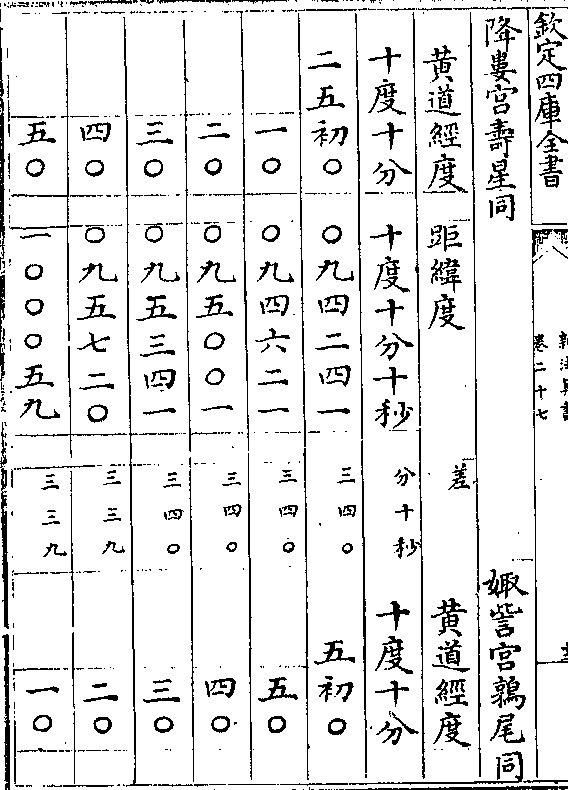 欽定四庫全書
卷二十七
降婁宮壽星同 娵訾宮鶉尾同
黄道經度 距緯度 差 黄道經度
十度十分 十度十分十秒 分十秒 十度十分
二五初〇 〇九四二四一 三四〇 五初〇
一〇 〇九四六二一 三四〇 五〇
二〇 〇九五〇〇一 三四〇 四〇
三〇 〇九五三四一 三四〇 三〇
四〇 〇九五七二〇 三三九 二〇
五〇 一〇〇〇五九 三三九 一〇